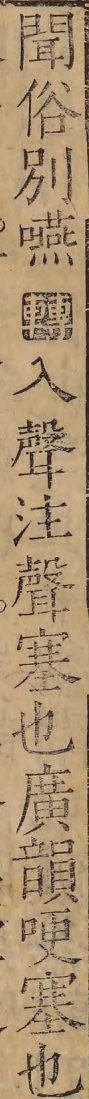 聞俗別嚥轉入聲注聲塞也廣韻哽塞也